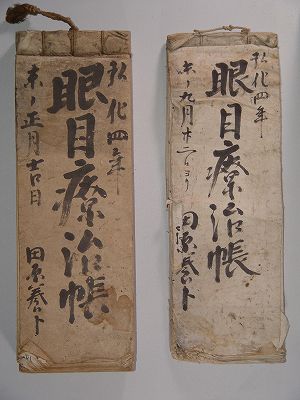 弘化四年
眼目療治帳
未ノ正月吉日
田原養卜
弘化四年
眼目療治帳
未ノ九月廿二日ヨリ
田原養卜